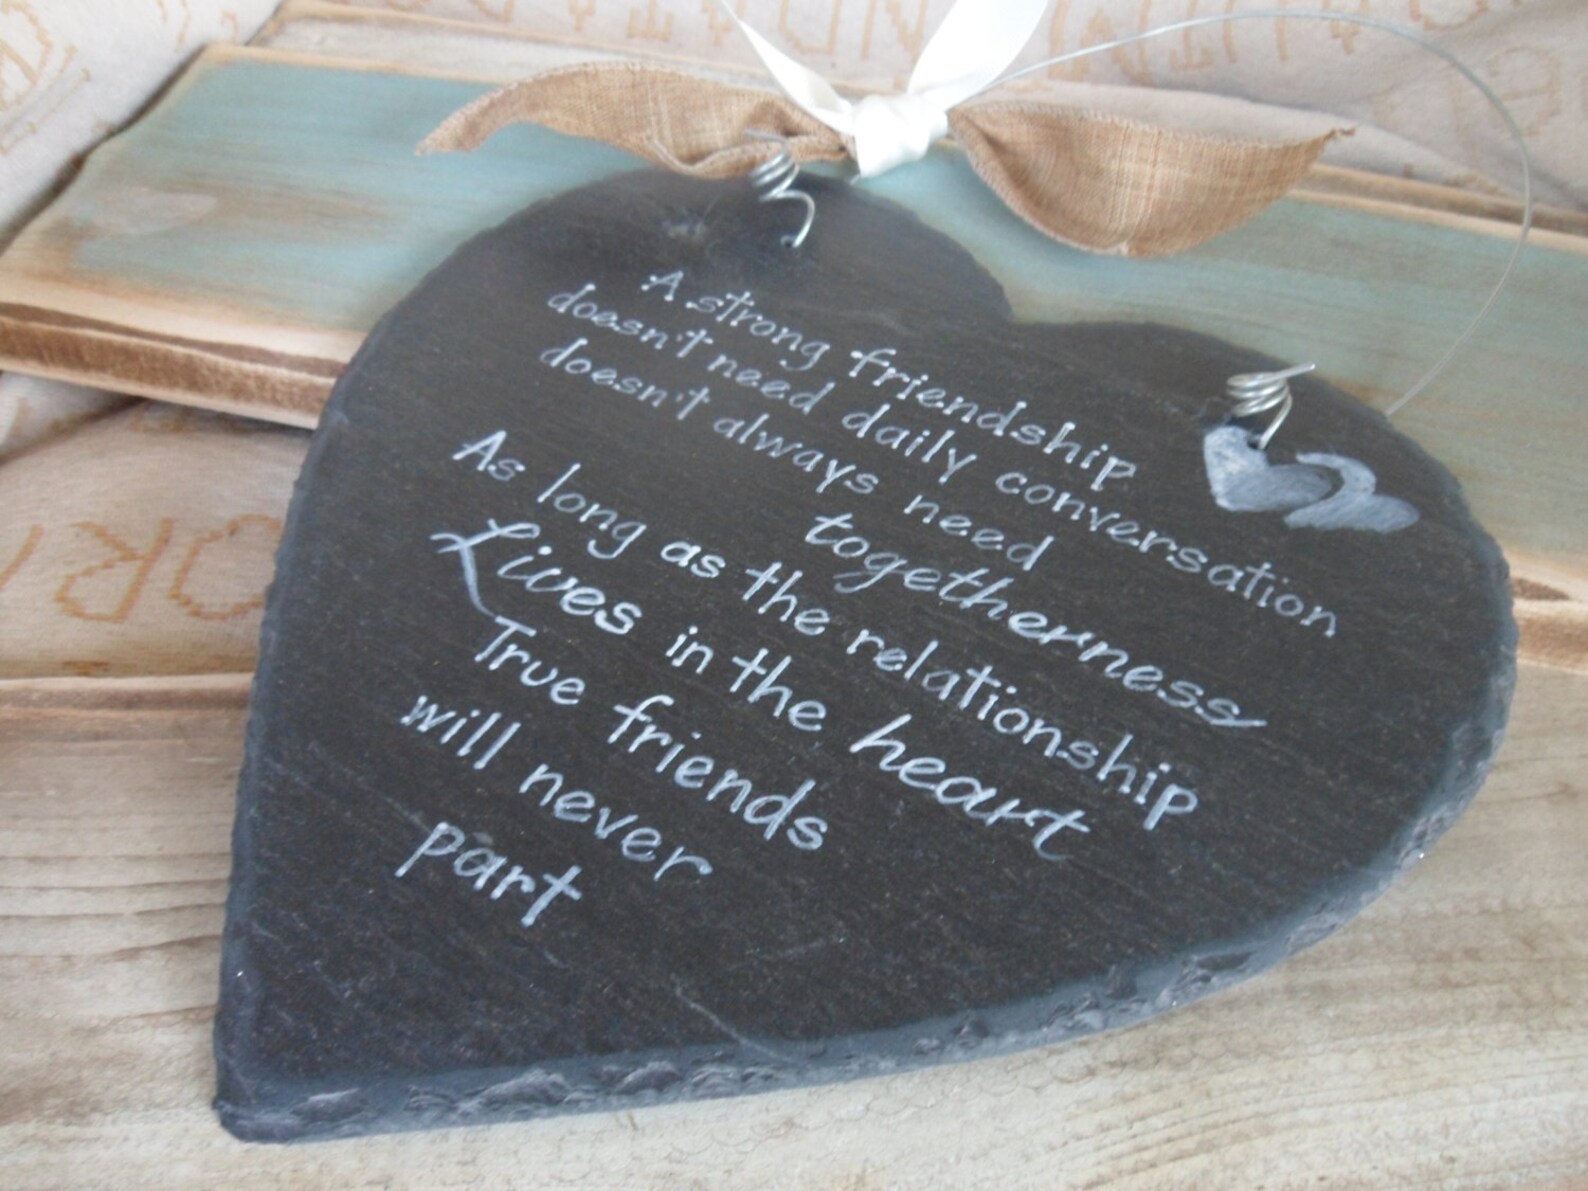 A strong friendship
doesn't need daily conversation
doesn't always need
togetherness
As long as the relationship
Lives in the heart
True friends
will never
part